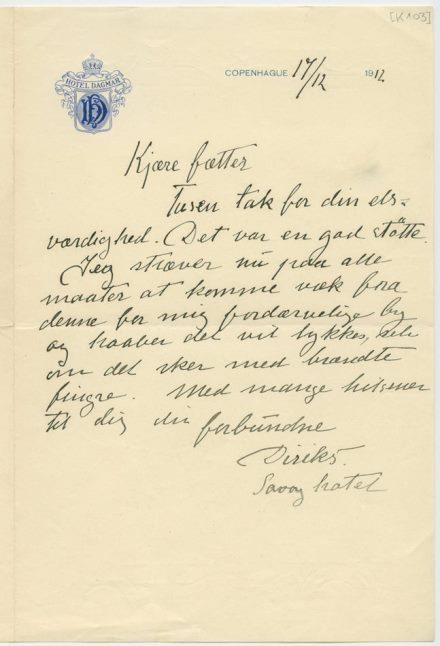 [K 103]
HOTEL DAGMAR
HD
COPENHAGUE 17/12 1912
Kjære fætter
Tusen tak for din els=
værdighed. Det var en god støtte.
Jeg stræver nu paa alle
maater at komme væk fra
denne for mig fordærvelige by
og haaber det vil lykkes, selv
om det sker med brændte
fingre. Med mange hilsener
til dig din forbundne
Diriks.
Savoy hotel